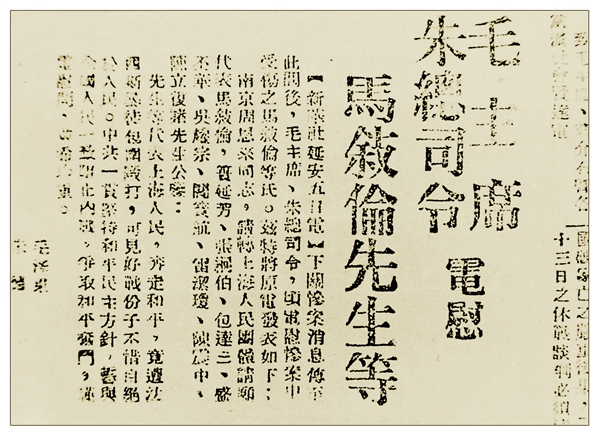 十三日之休戰談判必須
毛主席
朱總司令 電慰
馬敍倫先生等
【新華社延安五日電】下關慘案消息傳至
此間後，毛主席、朱總司令，頃電慰慘案中
受傷之馬敍倫等氏。茲特將原電發表如下：
南京周恩來同志，請轉上海人民團體請願
代表馬敍倫，簣延芳、張絅伯、包達三、盛
丕華、吳耀宗、閻寶航、雷潔瓊、陳震中、
陳立復諸先生公鑒：
先生等代表上海人民，奔走和平，竟遭法
西斯暴徒包圍毆打，可見好戰份子不惜自絕
於人民。中共一貫堅持和平民主方針，誓與
全國人民一致阻止內戰，爭取和平奮鬥，謹
電慰問，並希珍重。
毛澤東
朱德